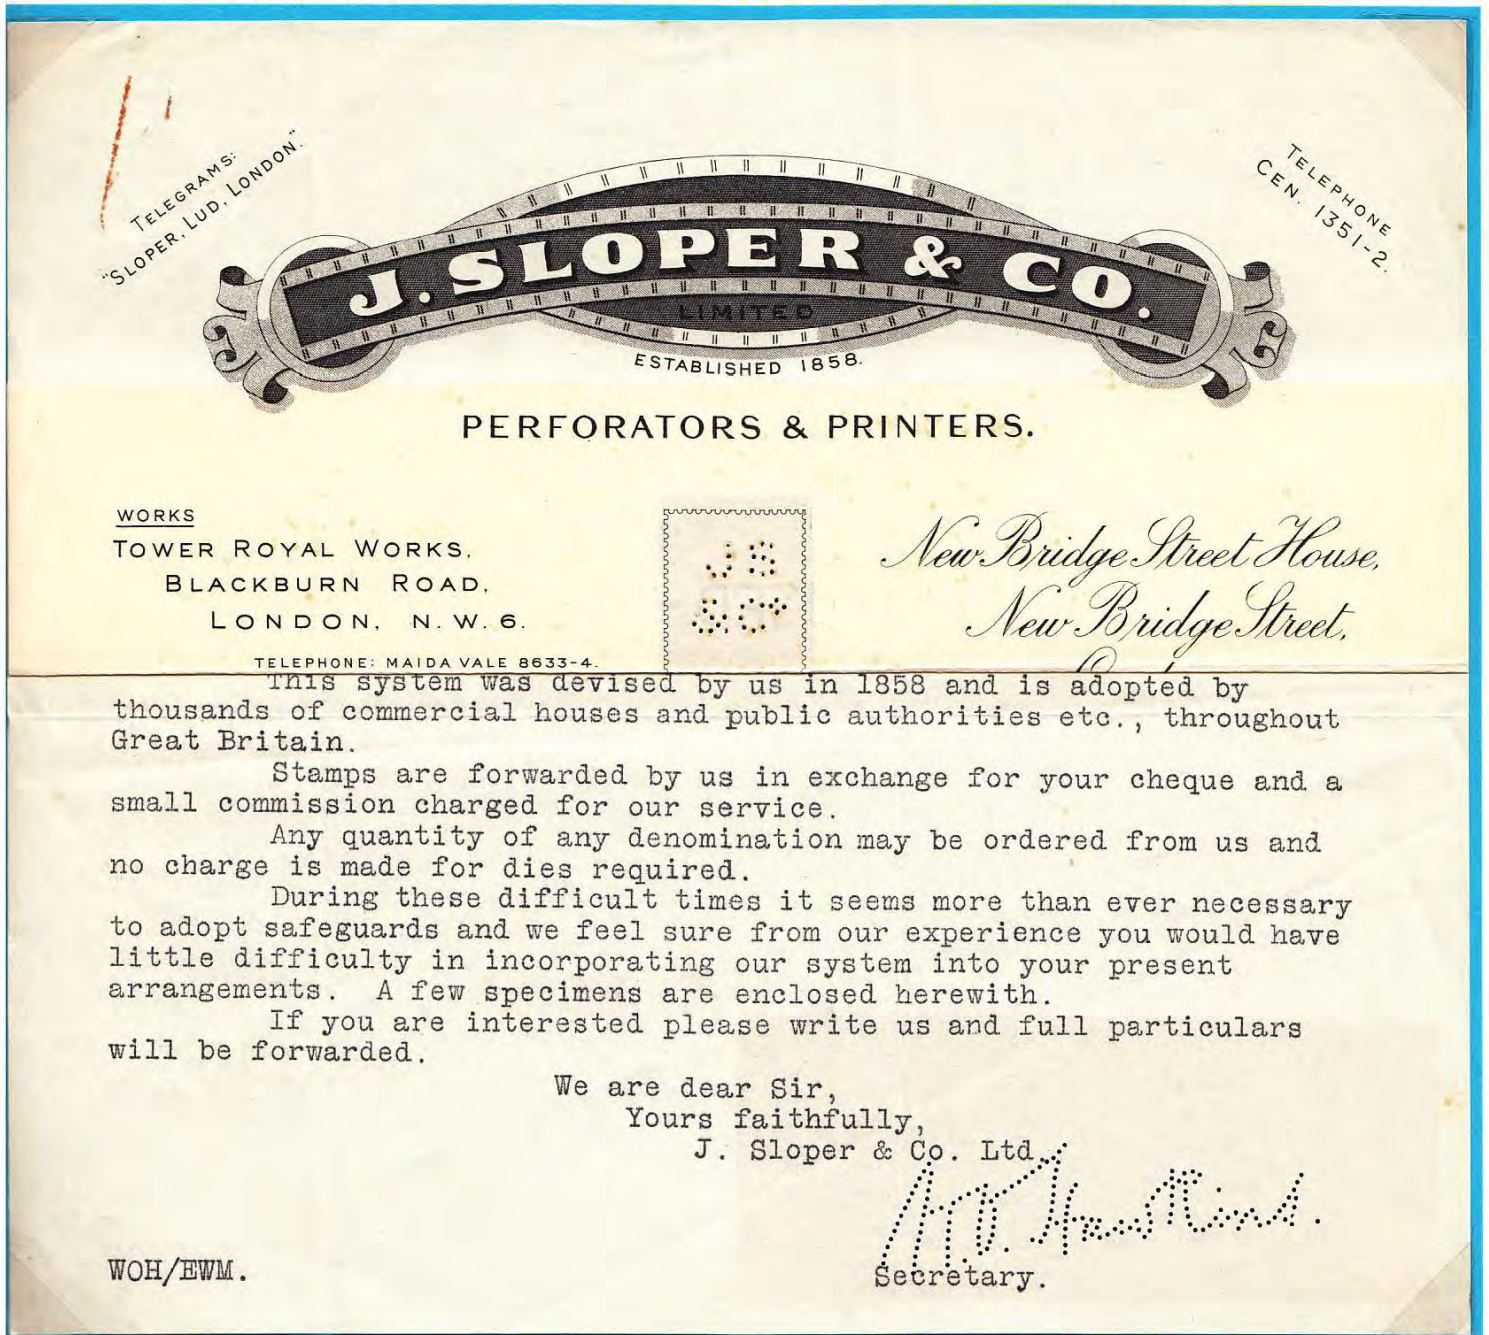 TELEGRAMS:
"SLOPER, LUD, LONDON."
TELEPHONE
CEN. 1351-2.
J. SLOPER & CO.
LIMITED
ESTABLISHED 1858.
PERFORATORS & PRINTERS.
WORKS
TOWER ROYAL WORKS,
BLACKBURN ROAD,
LONDON, N.W.6.
TELEPHONE: MAIDA VALE 8633-4.
JS
&Co
New Bridge Street House,
New Bridge Street,
This system was devised by us in 1858 and is adopted by
thousands of commercial houses and public authorities etc., throughout
Great Britain.
Stamps are forwarded by us in exchange for your cheque and a
small commission charged for our service.
Any quantity of any denomination may be ordered from us and
no charge is made for dies required.
During these difficult times it seems more than ever necessary
to adopt safeguards and we feel sure from our experience you would have
little difficulty in incorporating our system into your present
arrangements. A few specimens are enclosed herewith.
If you are interested please write us and full particulars
will be forwarded.
We are dear Sir,
Yours faithfully,
J. Sloper & Co. Ltd.
Hawkins.
Secretary.
WOH/EWM.